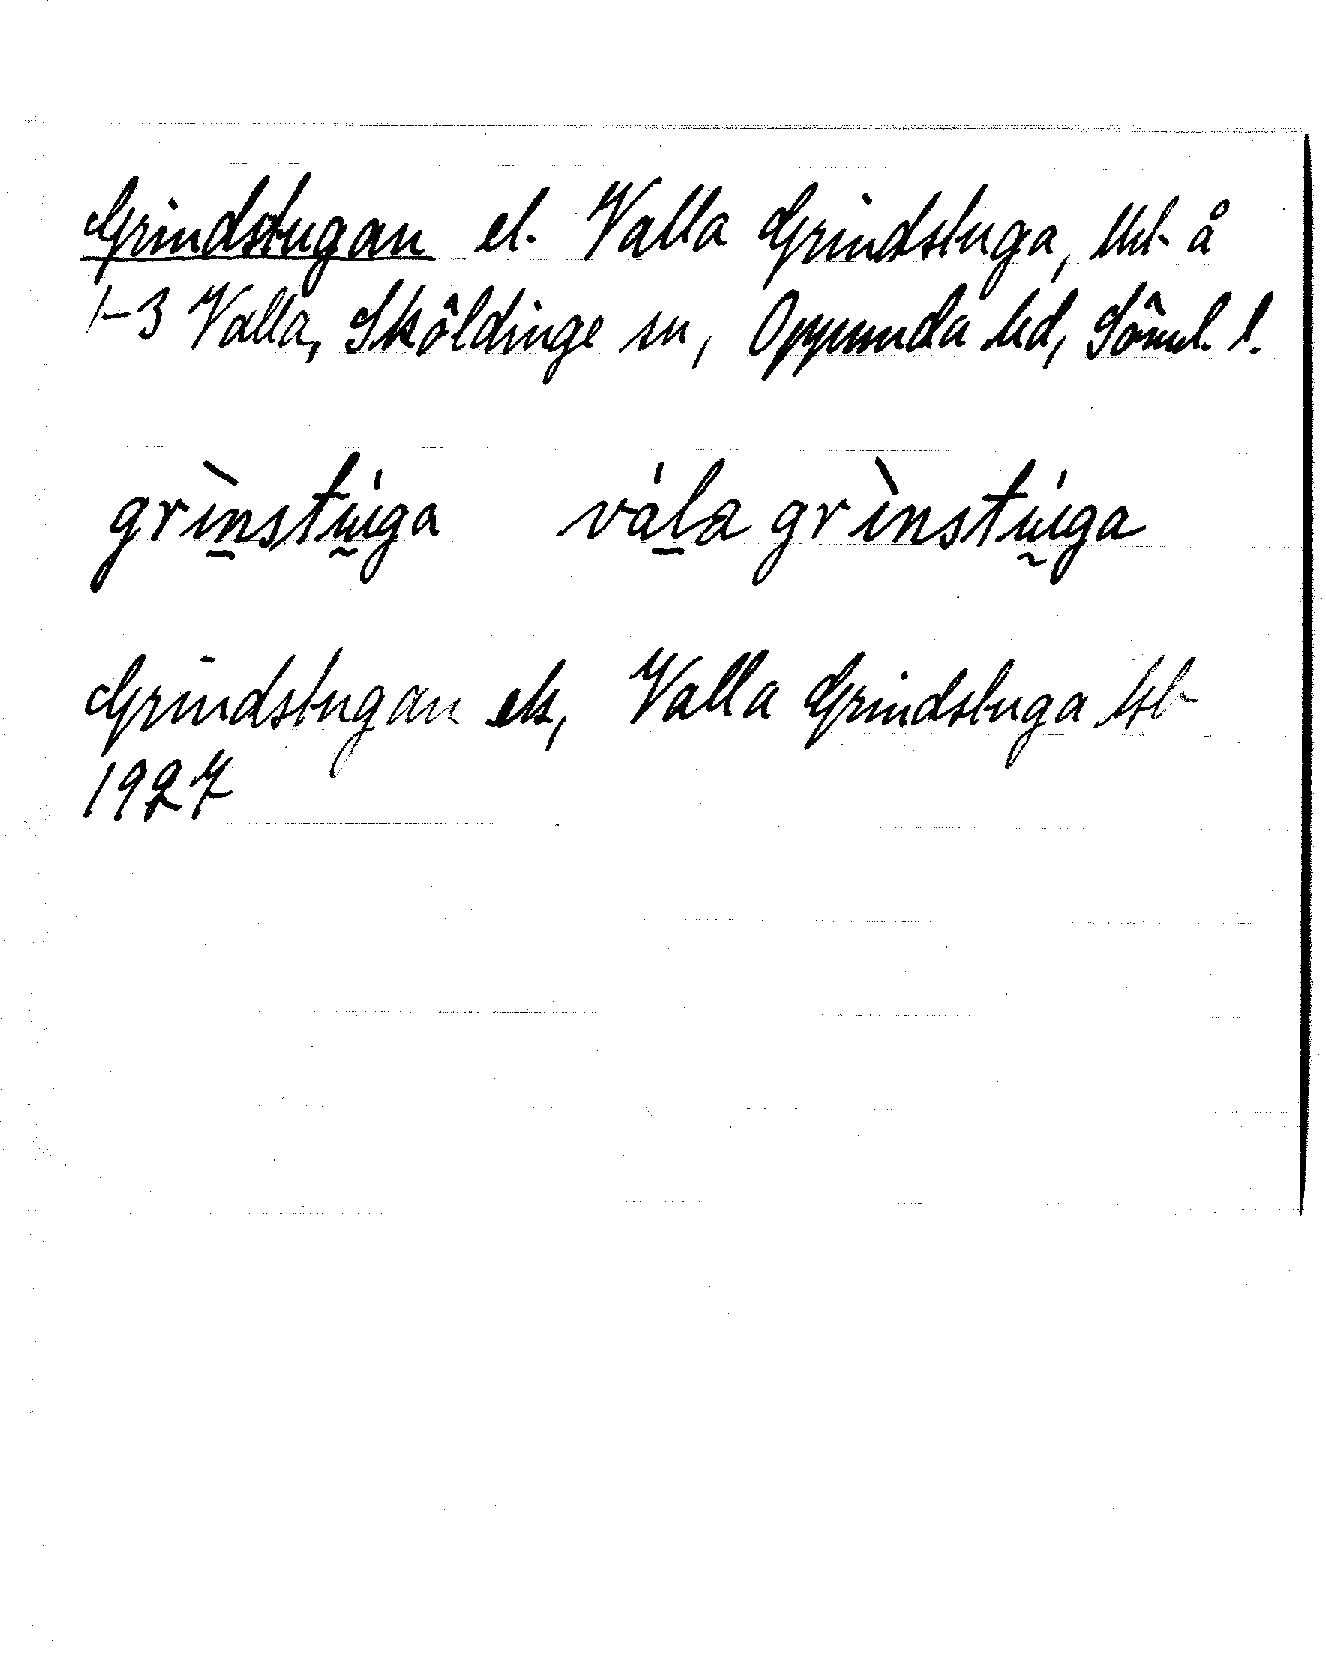 Grindstugan el. Valla Grindstuga, lht å
1-3 Valla, Sköldinge sn, Oppunda hd, Söml. l.
grìnstṵ́ga vála grìnstṵ́ga
Grindstugan ek, Valla Grindstuga
1927